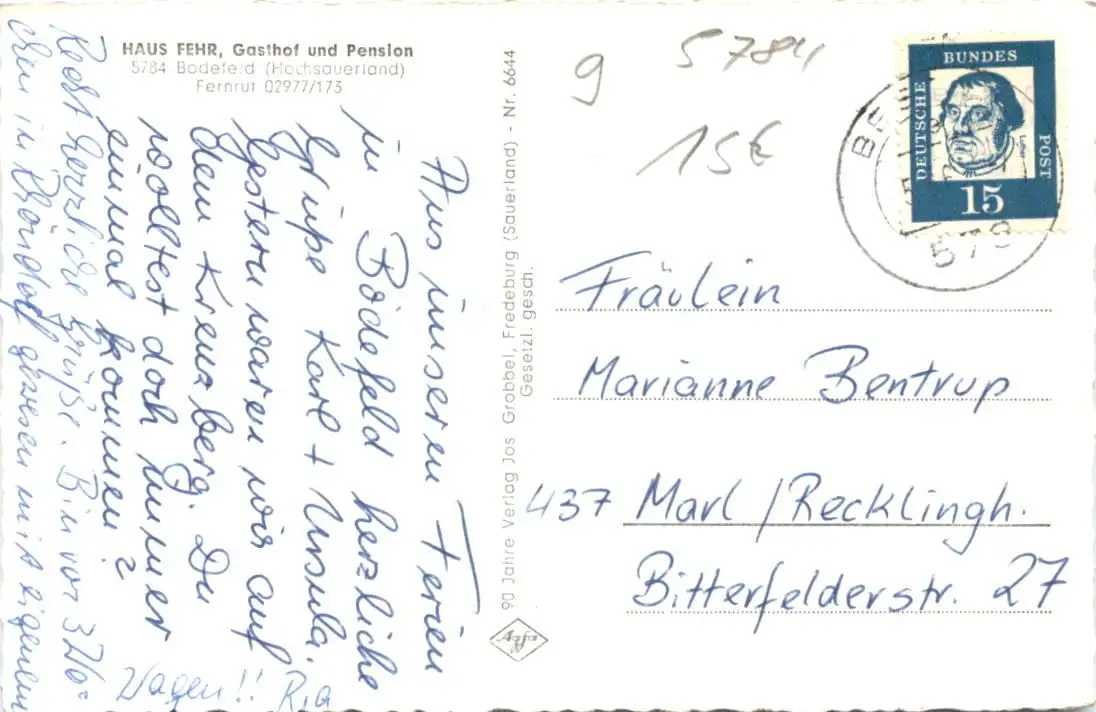 HAUS FEHR, Gasthof und Pension
5784 Bödefeld (Hochsauerland)
Fernruf 02977/173
Aus unseren Ferien
in Bödefeld herzliche
Grüße Karl + Ursula.
Gestern waren wir auf
dem Kreuzberg. Du
wolltest doch immer
einmal kommen?
Recht herzliche Grüße. Bin vor 3 Wo=
chen in gewesen mit eigenem
Wagen!! Ria
90 Jahre Verlag Jos Grobbel, Fredeburg (Sauerland) - Nr. 6644
Gesetzl. gesch.
Agfa
9
5784
15€
DEUTSCHE BUNDES POST
Luther
15
578
Fräulein
Marianne Bentrup
437 Marl / Recklingh.
Bitterfelderstr. 27